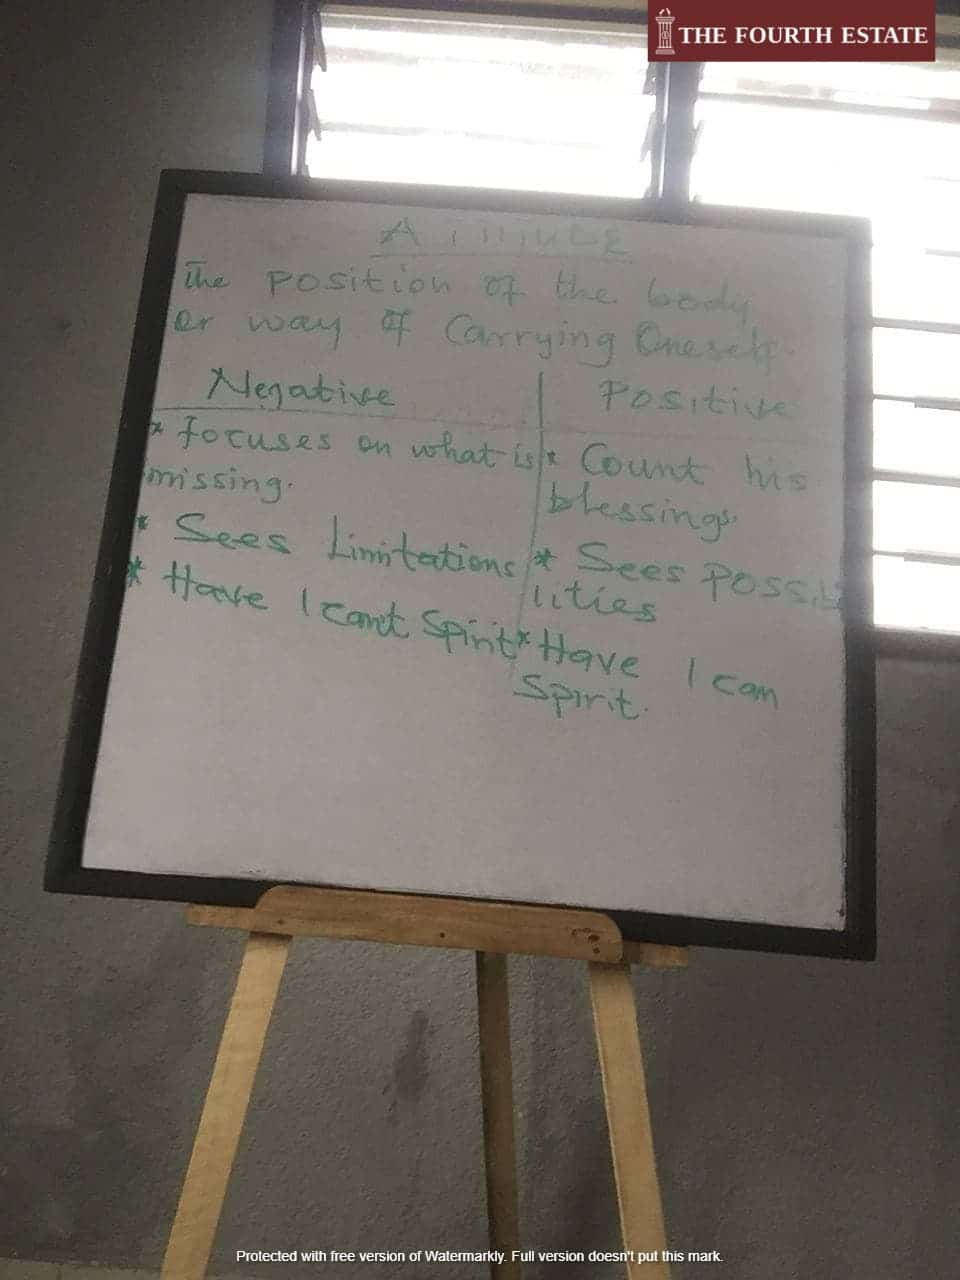 THE FOURTH ESTATE
ATTITUDE
The position of the body
or way of Carrying Oneself.
Negative
Positive
* focuses on what is
missing.
* Sees Limitations
* Have I can't Spirit
* Count his
blessings.
* Sees Possibi
lities
* Have I can
Spirit.
Protected with free version of Watermarkly. Full version doesn't put this mark.